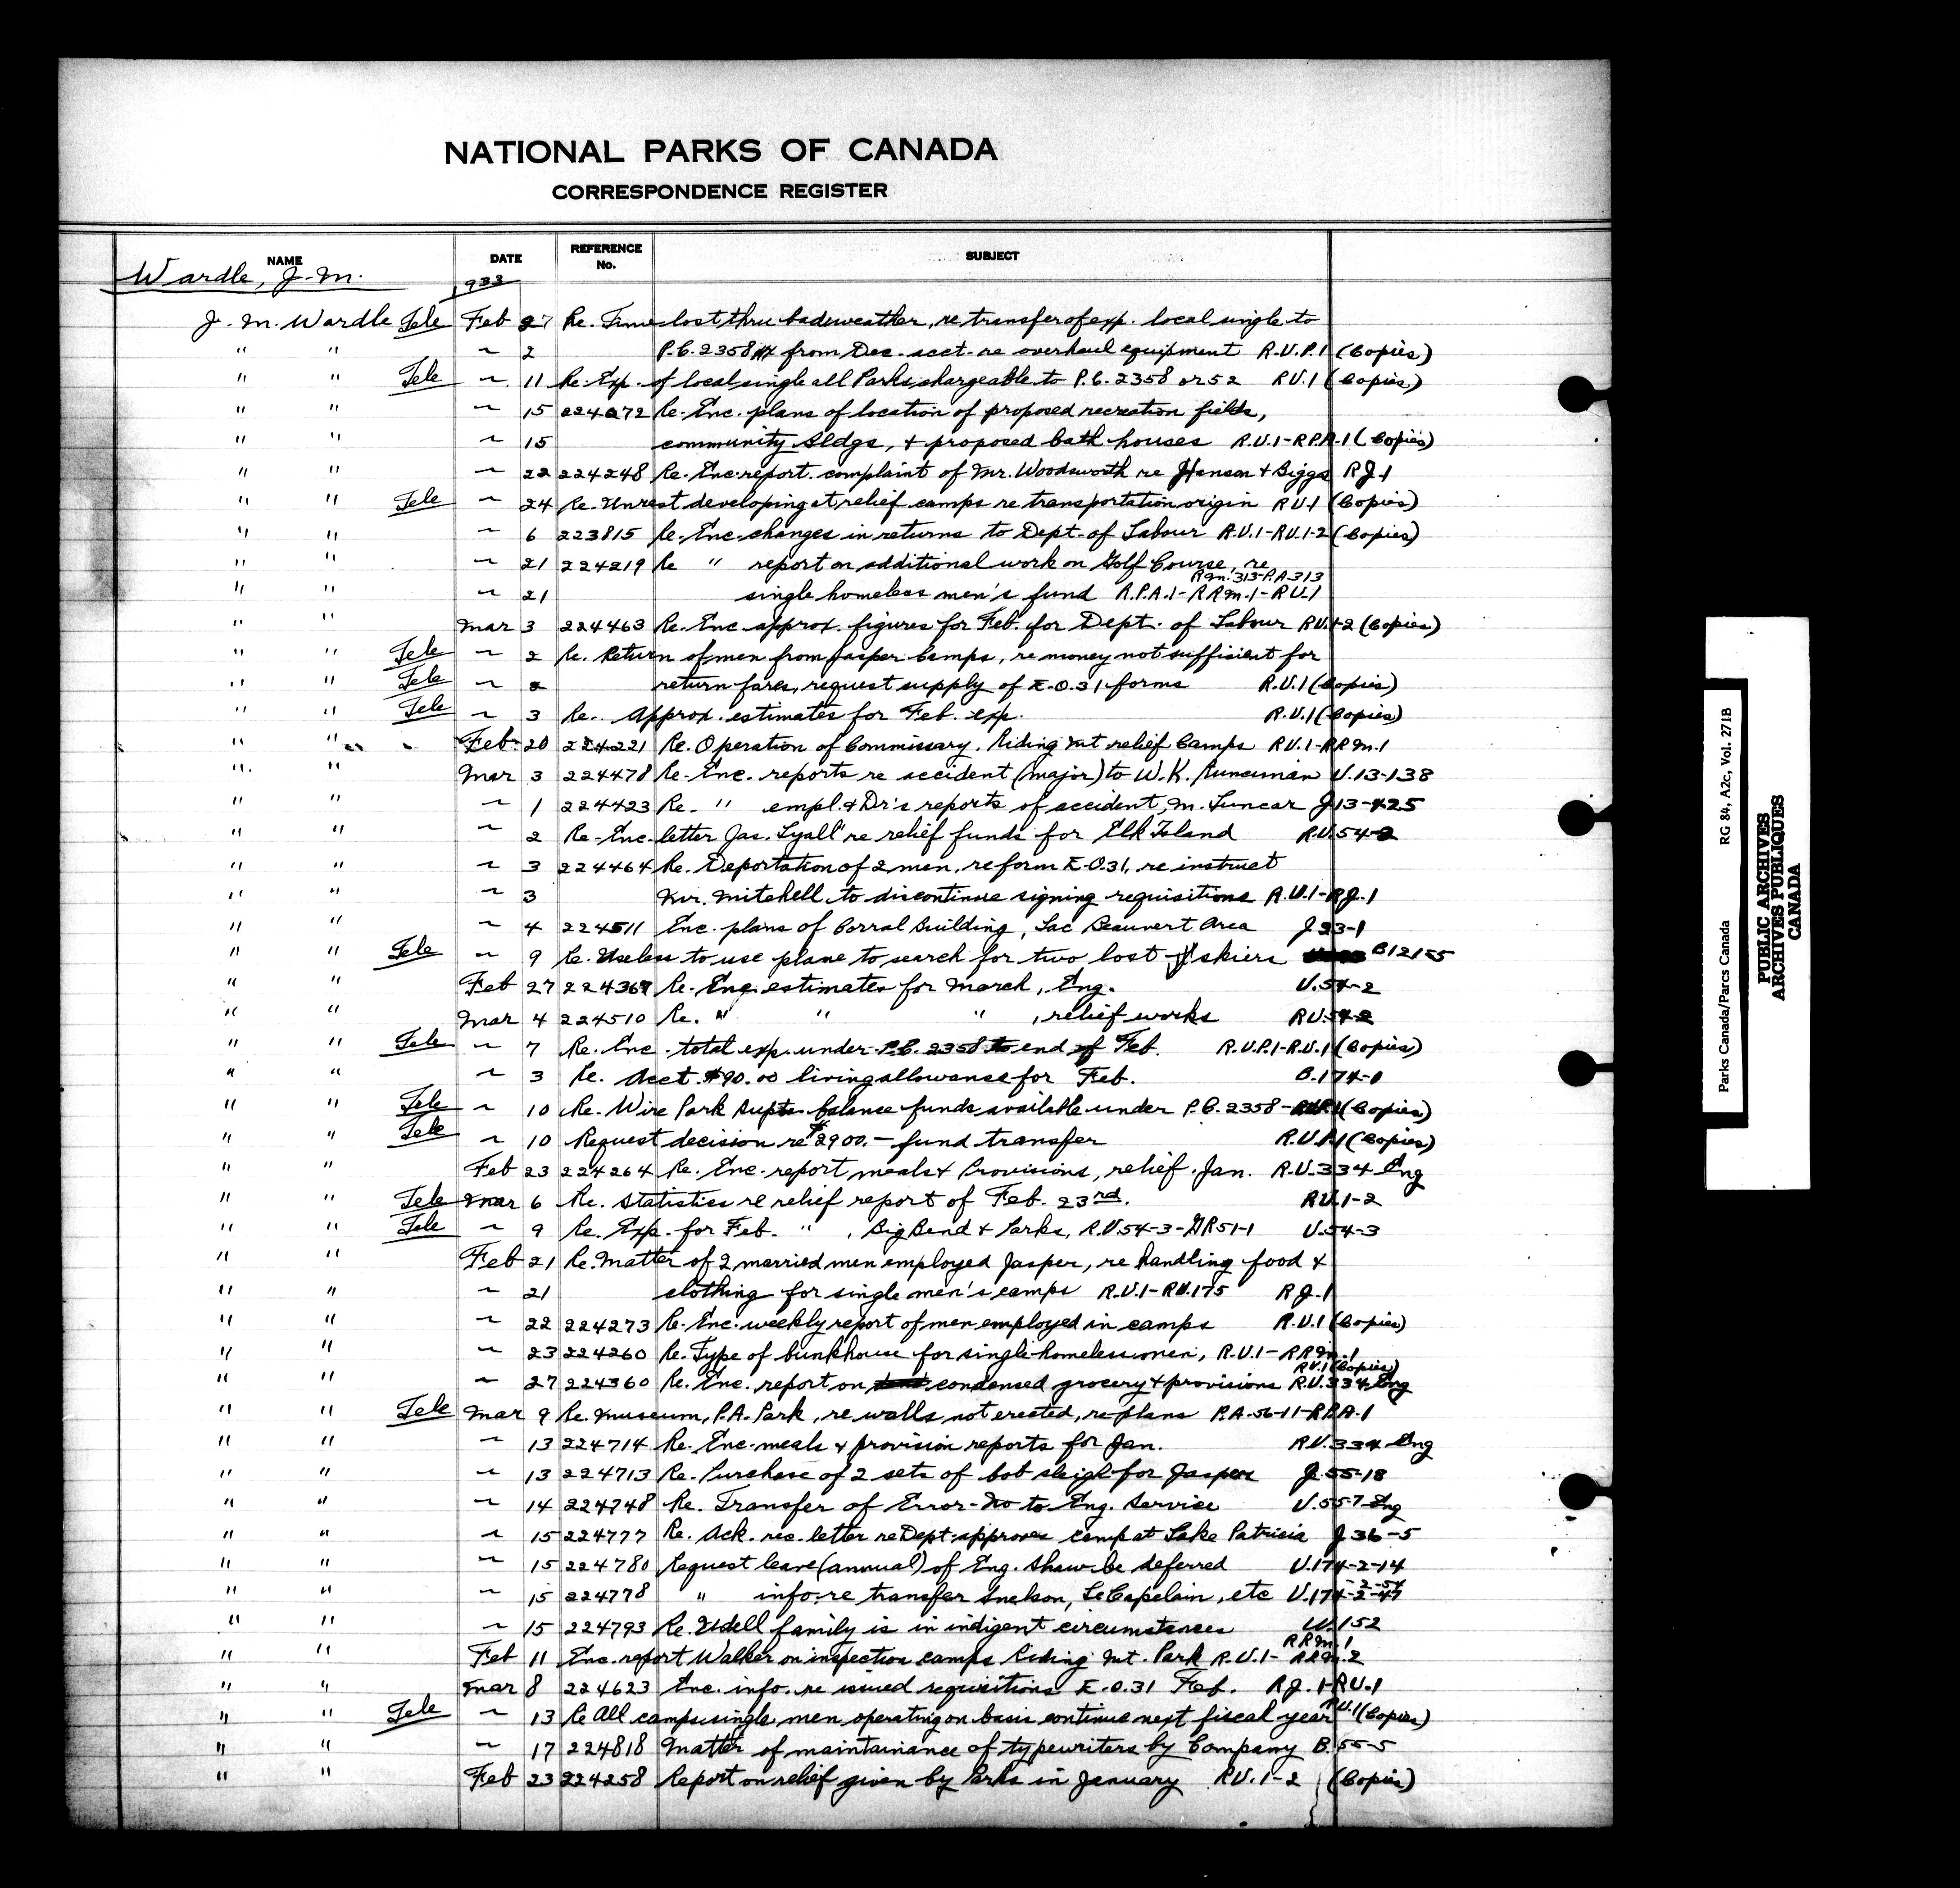 NATIONAL PARKS OF CANADA
CORRESPONDENCE REGISTER
NAME DATE REFERENCE No. SUBJECT
Wardle, J. M. 933
J. M. Wardle Tele Feb 27 Re. Time lost thru bad weather, re transfer of exp. local single to
" " ~ 2 P.C. 2358 from Dec. acct. re overhaul equipment R.U.P.1 (Copies)
" " Tele ~ 11 Re. Exp. of local single all Parks chargeable to P.C. 2358 or 52 R.U.1 (Copies)
" " ~ 15 224272 Re. Enc. plans of location of proposed recreation fields,
" " ~ 15 community Bldgs, & proposed bath houses R.U.1-R.P.A.1 (Copies)
" " ~ 22 224248 Re. Enc. report complaint of Mr. Woodsworth re Hanson & Biggs R.J.1
" " Tele ~ 24 Re. Unrest developing at relief camps re transportation origin R.U.1 (Copies)
" " ~ 6 223815 Re. Enc. changes in returns to Dept. of Labour R.U.1-R.U.1-2 (Copies)
" " ~ 21 224219 Re " report on additional work on Golf Course, re
Rm.313-P.A.313
" " ~ 21 single homeless men's fund R.P.A.1-R.Rm.1-R.U.1
" " Mar 3 224463 Re. Enc approx. figures for Feb. for Dept. of Labour R.U.1-2 (Copies)
" " Tele ~ 2 Re. Return of men from Jasper Camps, re money not sufficient for
" " Tele ~ 2 return fares, request supply of E.O.31 forms R.U.1 (Copies)
" " Tele ~ 3 Re. Approx. estimates for Feb. exp. R.U.1 (Copies)
" " Feb. 20 224221 Re. Operation of Commissary, Riding Mt relief Camps R.U.1-R.Rm.1
" " Mar 3 224478 Re. Enc. reports re accident (major) to W.K. Runciman U.13-138
" " ~ 1 224423 Re. " empl. & Dr's reports of accident, M. Luncar J13-425
" " ~ 2 Re. Enc. letter Jas. Lyall re relief funds for Elk Island R.U.54-2
" " ~ 3 224464 Re. Deportation of 2 men, re form E.O.31, re instruct
" " ~ 3 Mr. Mitchell to discontinue signing requisitions R.U.1-R.J.1
" " ~ 4 224511 Enc. plans of Corral Building, Lac Beauvert Area J.23-1
" " Tele ~ 9 Re. Useless to use plane to search for two lost skiers B12155
" " Feb 27 224367 Re. Enc. estimates for March, Eng. U.54-2
" " Mar 4 224510 Re. " " " , relief works R.U.54-2
" " Tele ~ 7 Re. Enc. total exp. under P.C. 2358 to end of Feb. R.U.P.1-R.U.1 (Copies)
" " ~ 3 Re. Acct. $90.00 living allowance for Feb. B.174-1
" " Tele ~ 10 Re. Wire Park Supts. balance funds available under P.C. 2358- (Copies)
" " Tele ~ 10 Request decision re $2900.- fund transfer R.U.P.1 (Copies)
" " Feb 23 224264 Re. Enc. report meals & Provisions, relief. Jan. R.U.334 Eng
" " Tele Mar 6 Re. Statistics re relief report of Feb. 23rd. R.U.1-2
" " Tele ~ 9 Re. Exp. for Feb. " , Big Bend & Parks, R.U.54-3-GR51-1 U.54-3
" " Feb 21 Re. Matter of 2 married men employed Jasper, re handling food &
" " ~ 21 clothing for single men's camps R.U.1-R.U.175 R.J.1
" " ~ 22 224273 Re. Enc. weekly report of men employed in camps R.U.1 (Copies)
" " ~ 23 224260 Re. Type of bunkhouse for single homeless men, R.U.1-R.Rm.1
R.U.1 (Copies)
" " ~ 27 224360 Re. Enc. report on condensed grocery & provisions R.U.334 Eng
" " Tele Mar 9 Re. Museum, P.A. Park, re walls not erected, re plans P.A.56-11-R.P.A.1
" " ~ 13 224714 Re. Enc. meals & provision reports for Jan. R.U.334 Eng
" " ~ 13 224713 Re. Purchase of 2 sets of bob sleigh for Jasper J.55-18
" " ~ 14 224748 Re. Transfer of Error-No to Eng. Service U.55-7 Eng
" " ~ 15 224777 Re. Ack. rec. letter re Dept. approves camp at Lake Patricia J.36-5
" " ~ 15 224780 Request leave (annual) of Eng. Shaw be deferred U.174-2-14
-2-54
" " ~ 15 224778 " info. re transfer Snelson, LeCapelain, etc U.174-2-47
" " ~ 15 224793 Re. Udell family is in indigent circumstances W.152
R.Rm.1
" " Feb 11 Enc. report Walker on inspection camps Riding Mt. Park R.U.1- R.Rm.2
" " Mar 8 224623 Enc. info. re issued requisitions E.O.31 Feb. R.J.1-R.U.1
" " Tele ~ 13 Re All camps single men operating on basis continue next fiscal year R.U.1 (Copies)
" " ~ 17 224818 Matter of maintainance of typewriters by Company B.55-5
" " Feb 23 224258 Report on relief given by Parks in January R.U.1-2 (Copies)
Parks Canada/Parcs Canada RG 84, A2c, Vol. 271B
PUBLIC ARCHIVES
ARCHIVES PUBLIQUES
CANADA